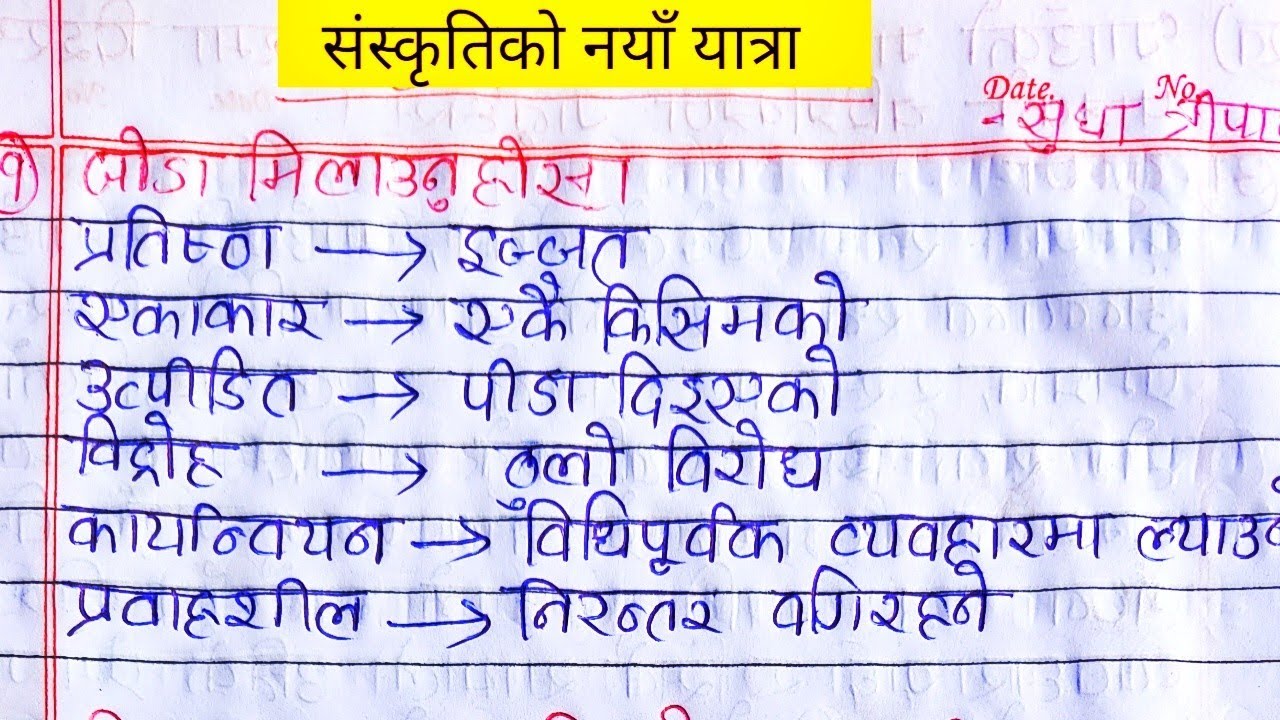 संस्कृतिको नयाँ यात्रा
Date. No.
- सुधा त्रीपा
१) जोडा मिलाउनुहोस।
प्रतिष्ठा → इज्जत
एकाकार → एकै किसिमको
उत्पीडित → पीडा दिइएको
विद्रोह → ठुलो विरोध
कार्यान्वियन → विधिपूर्वक व्यवहारमा ल्याउने
प्रवाहशील → निरन्तर वगिरहने